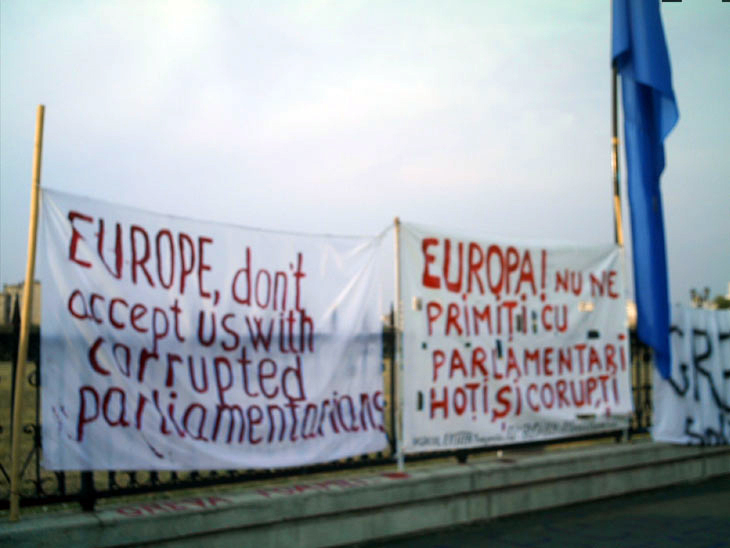 EUROPE, don't
accept us with
corrupted
parliamentarians
EUROPA! NU NE
PRIMIȚI CU
PARLAMENTARI
HOȚI ȘI CORUPȚI
GRE